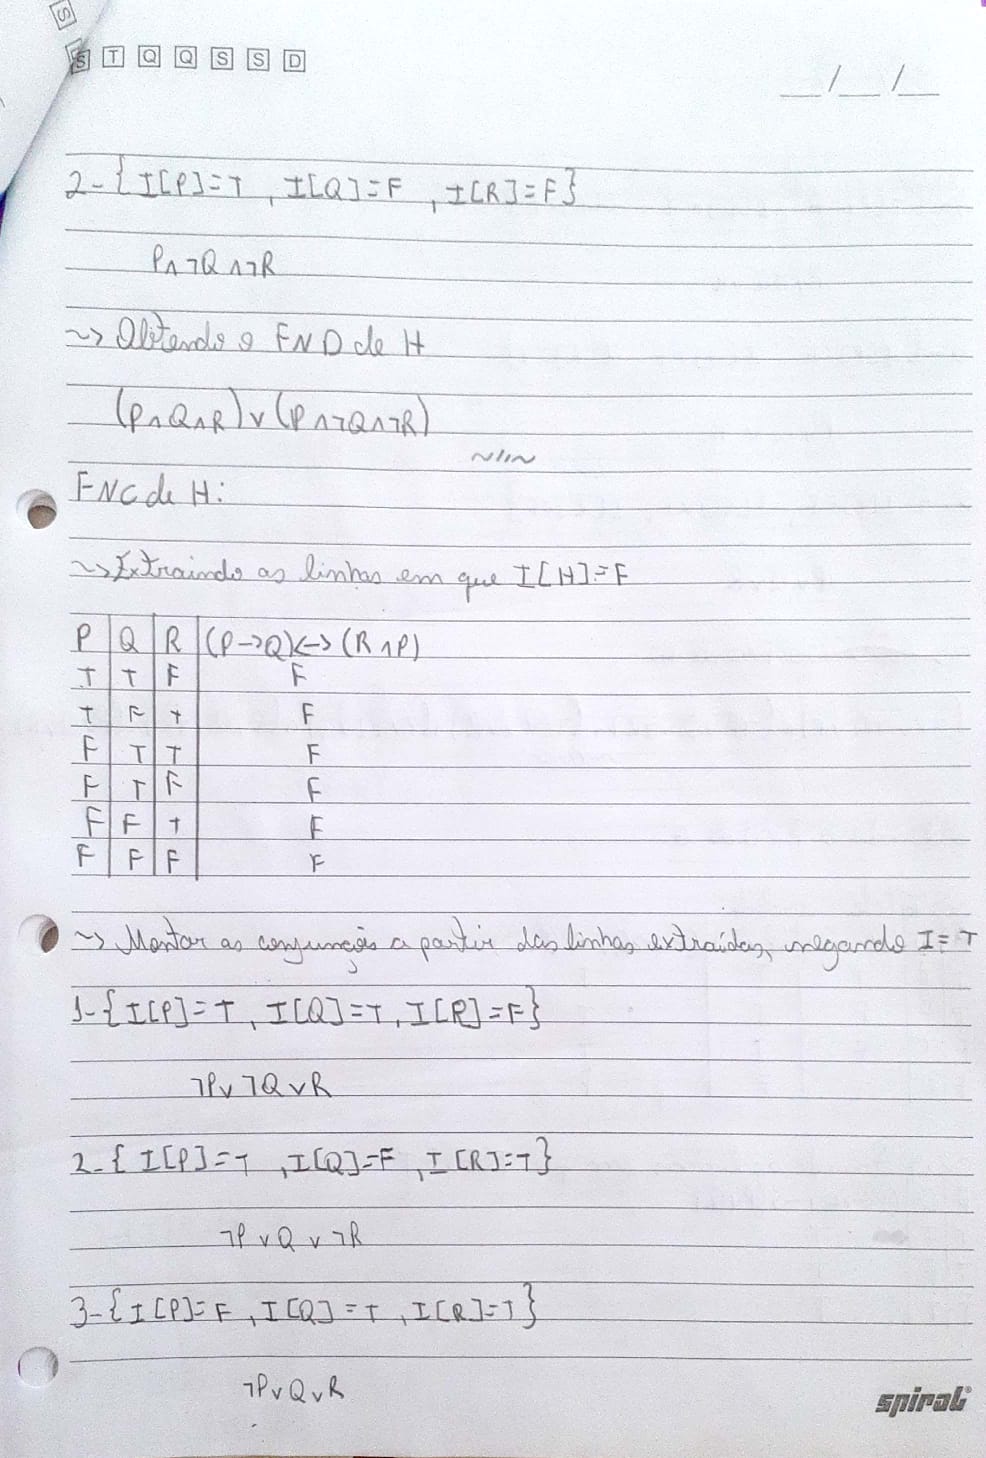 S
S T Q Q S S D
__/__/__
2-{I[P]=T, I[Q]=F, I[R]=F}
P∧¬Q∧¬R
~> Obtendo o FND de H
(P∧Q∧R)∨(P∧¬Q∧¬R)
FNC de H:
~> Extraindo as linhas em que I[H]=F
P Q R (P→Q)↔(R∧P)
T T F F
T F T F
F T T F
F T F F
F F T F
F F F F
~> Montar as conjunções a partir das linhas extraídas, negando I=T
1-{I[P]=T, I[Q]=T, I[R]=F}
¬P∨¬Q∨R
2-{I[P]=T, I[Q]=F, I[R]=T}
¬P∨Q∨¬R
3-{I[P]=F, I[Q]=T, I[R]=T}
¬P∨Q∨R
spiral